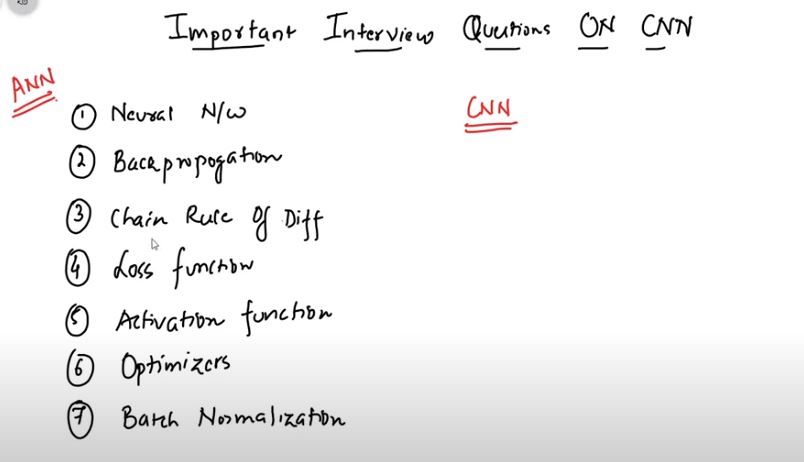 Important Interview Questions ON CNN
ANN
CNN
① Neural N/W
② Backpropogation
③ Chain Rule Of Diff
④ Loss function
⑤ Activation function
⑥ Optimizers
⑦ Batch Normalization